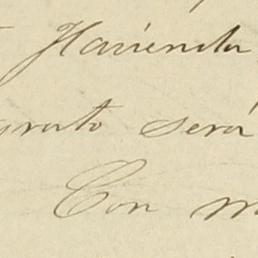 Hacienda
grato será
Con m